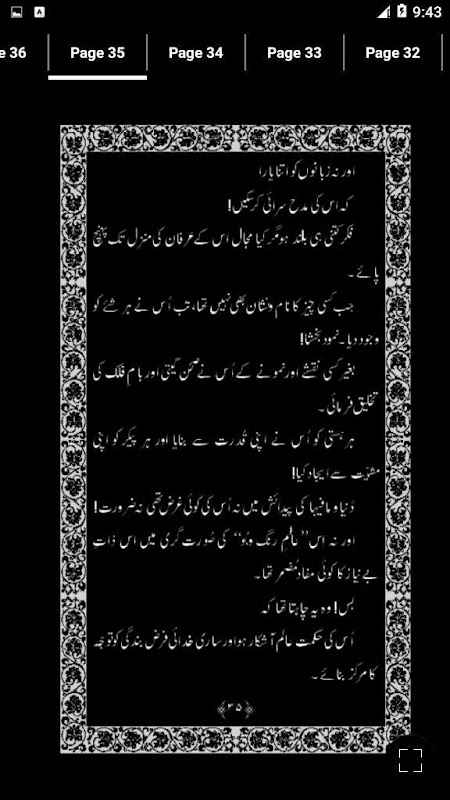 9:43
e 36 Page 35 Page 34 Page 33 Page 32
اور نہ زبانوں کو اتنا یارا
کہ اس کی مدح سرائی کرسکیں!
فکر کتنی ہی بلند ہو مگر کیا مجال اس کے عرفان کی منزل تک پہنچ
پائے۔
جب کسی چیز کا نام و نشان بھی نہیں تھا، تب اُس نے ہر شئے کو
وجود دیا۔ نمود بخشا!
بغیر کسی نقشے اور نمونے کے اُس نے صحنِ گیتی اور بامِ فلک کی
تخلیق فرمائی۔
ہر ہستی کو اُس نے اپنی قُدرت سے بنایا اور ہر پیکر کو اپنی
مشیّت سے ایجاد کیا!
دُنیا و مافیہا کی پیدائش میں نہ اُس کی کوئی غرض تھی نہ ضرورت!
اور نہ اس ”عالمِ رنگ و بُو“ کی صُورت گری میں اس ذاتِ
بے نیاز کا کوئی مفاد مُضمر تھا۔
بس! وہ یہ چاہتا تھا کہ
اُس کی حکمت عالم آشکار ہو اور ساری خدائی فرضِ بندگی کو توجّہ
کا مرکز بنائے۔
﴿۳۵﴾